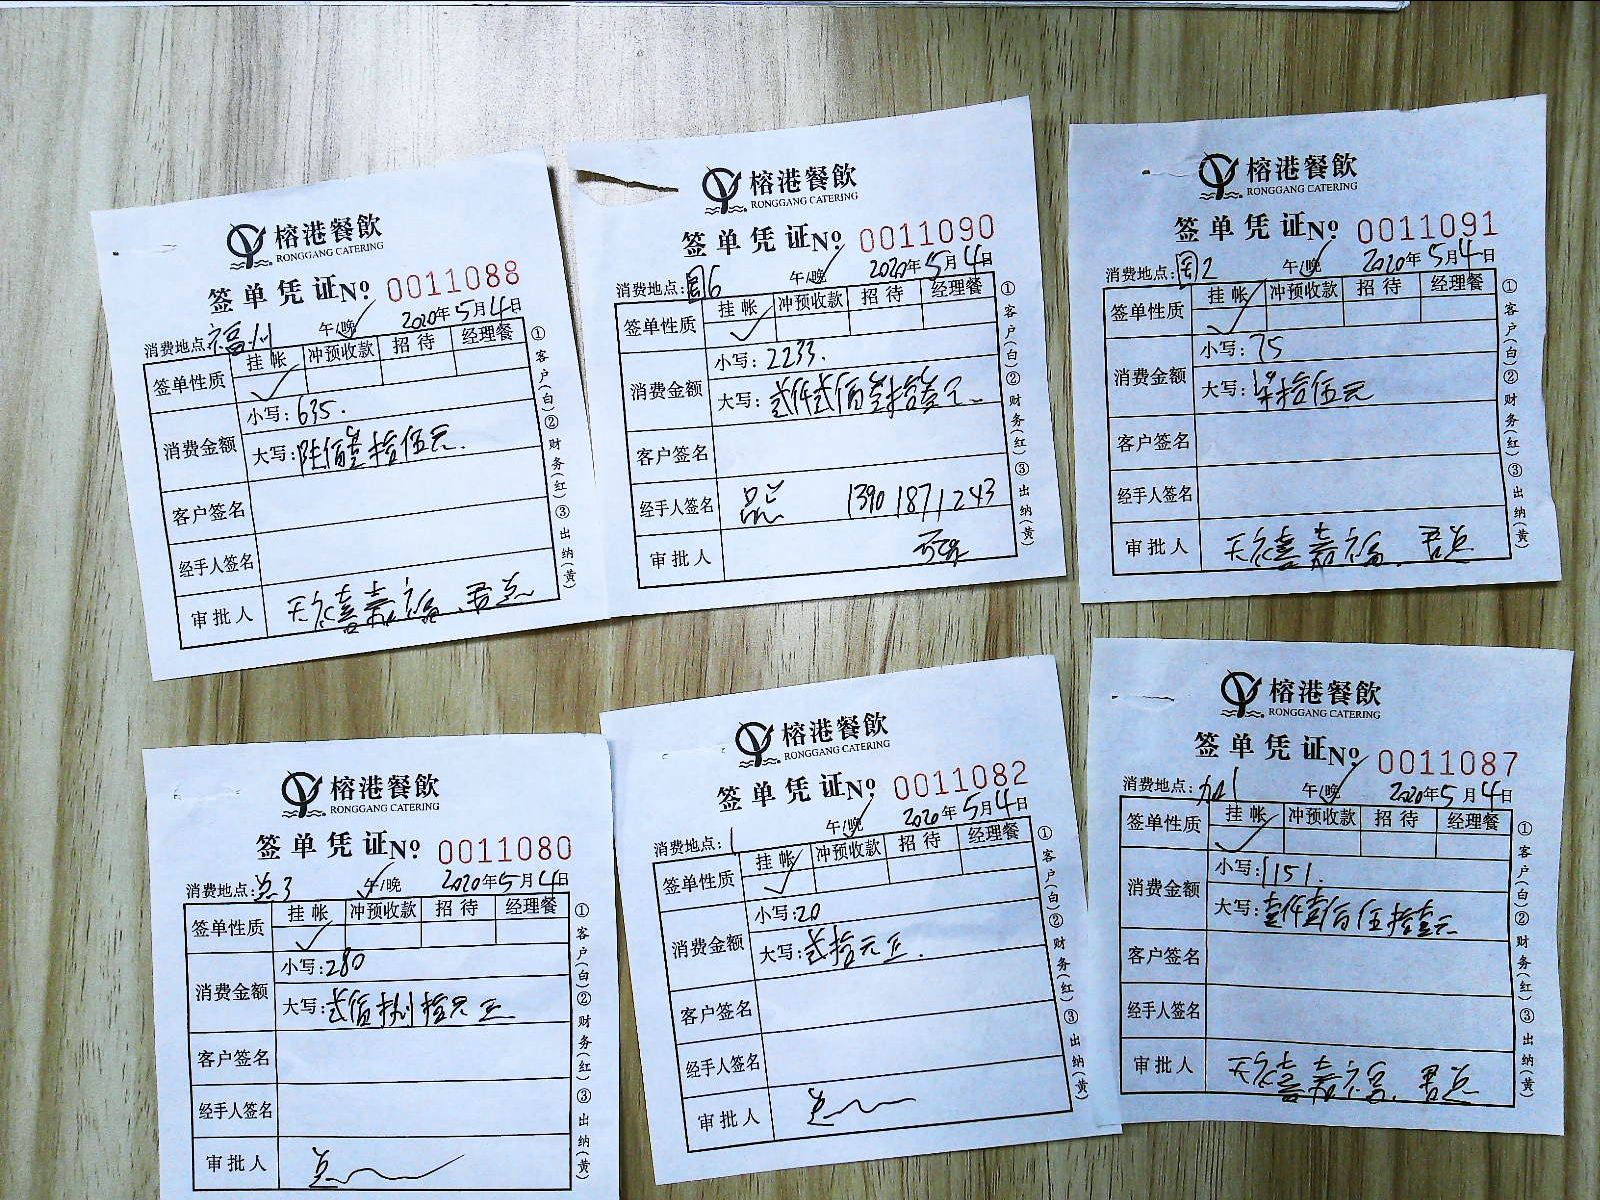 榕港餐飲
RONGGANG CATERING
签单凭证No. 0011088
消费地点:福州 午/晚 2020年5月4日
签单性质 挂帐 冲预收款 招待 经理餐
消费金额
小写:635.
大写:陆佰叁拾伍元.
客户签名
经手人签名
审批人
①客户(白)②财务(红)③出纳(黄)
榕港餐飲
RONGGANG CATERING
签单凭证No. 0011090
消费地点: 午/晚 2020年5月4日
签单性质 挂帐 冲预收款 招待 经理餐
消费金额
小写:2233.
大写:贰仟贰佰叁拾叁元
客户签名
经手人签名 13901871243
审批人
①客户(白)②财务(红)③出纳(黄)
榕港餐飲
RONGGANG CATERING
签单凭证No. 0011091
消费地点: 午/晚 2020年5月4日
签单性质 挂帐 冲预收款 招待 经理餐
消费金额
小写:75
大写:柒拾伍元
客户签名
经手人签名
审批人
①客户(白)②财务(红)③出纳(黄)
榕港餐飲
RONGGANG CATERING
签单凭证No. 0011080
消费地点: 午/晚 2020年5月4日
签单性质 挂帐 冲预收款 招待 经理餐
消费金额
小写:280
大写:贰佰捌拾元正
客户签名
经手人签名
审批人
①客户(白)②财务(红)③出纳(黄)
榕港餐飲
RONGGANG CATERING
签单凭证No. 0011082
消费地点:1 午/晚 2020年5月4日
签单性质 挂帐 冲预收款 招待 经理餐
消费金额
小写:20
大写:贰拾元正.
客户签名
经手人签名
审批人
①客户(白)②财务(红)③出纳(黄)
榕港餐飲
RONGGANG CATERING
签单凭证No. 0011087
消费地点:加1 午/晚 2020年5月4日
签单性质 挂帐 冲预收款 招待 经理餐
消费金额
小写:1151.
大写:壹仟壹佰伍拾壹元
客户签名
经手人签名
审批人
①客户(白)②财务(红)③出纳(黄)